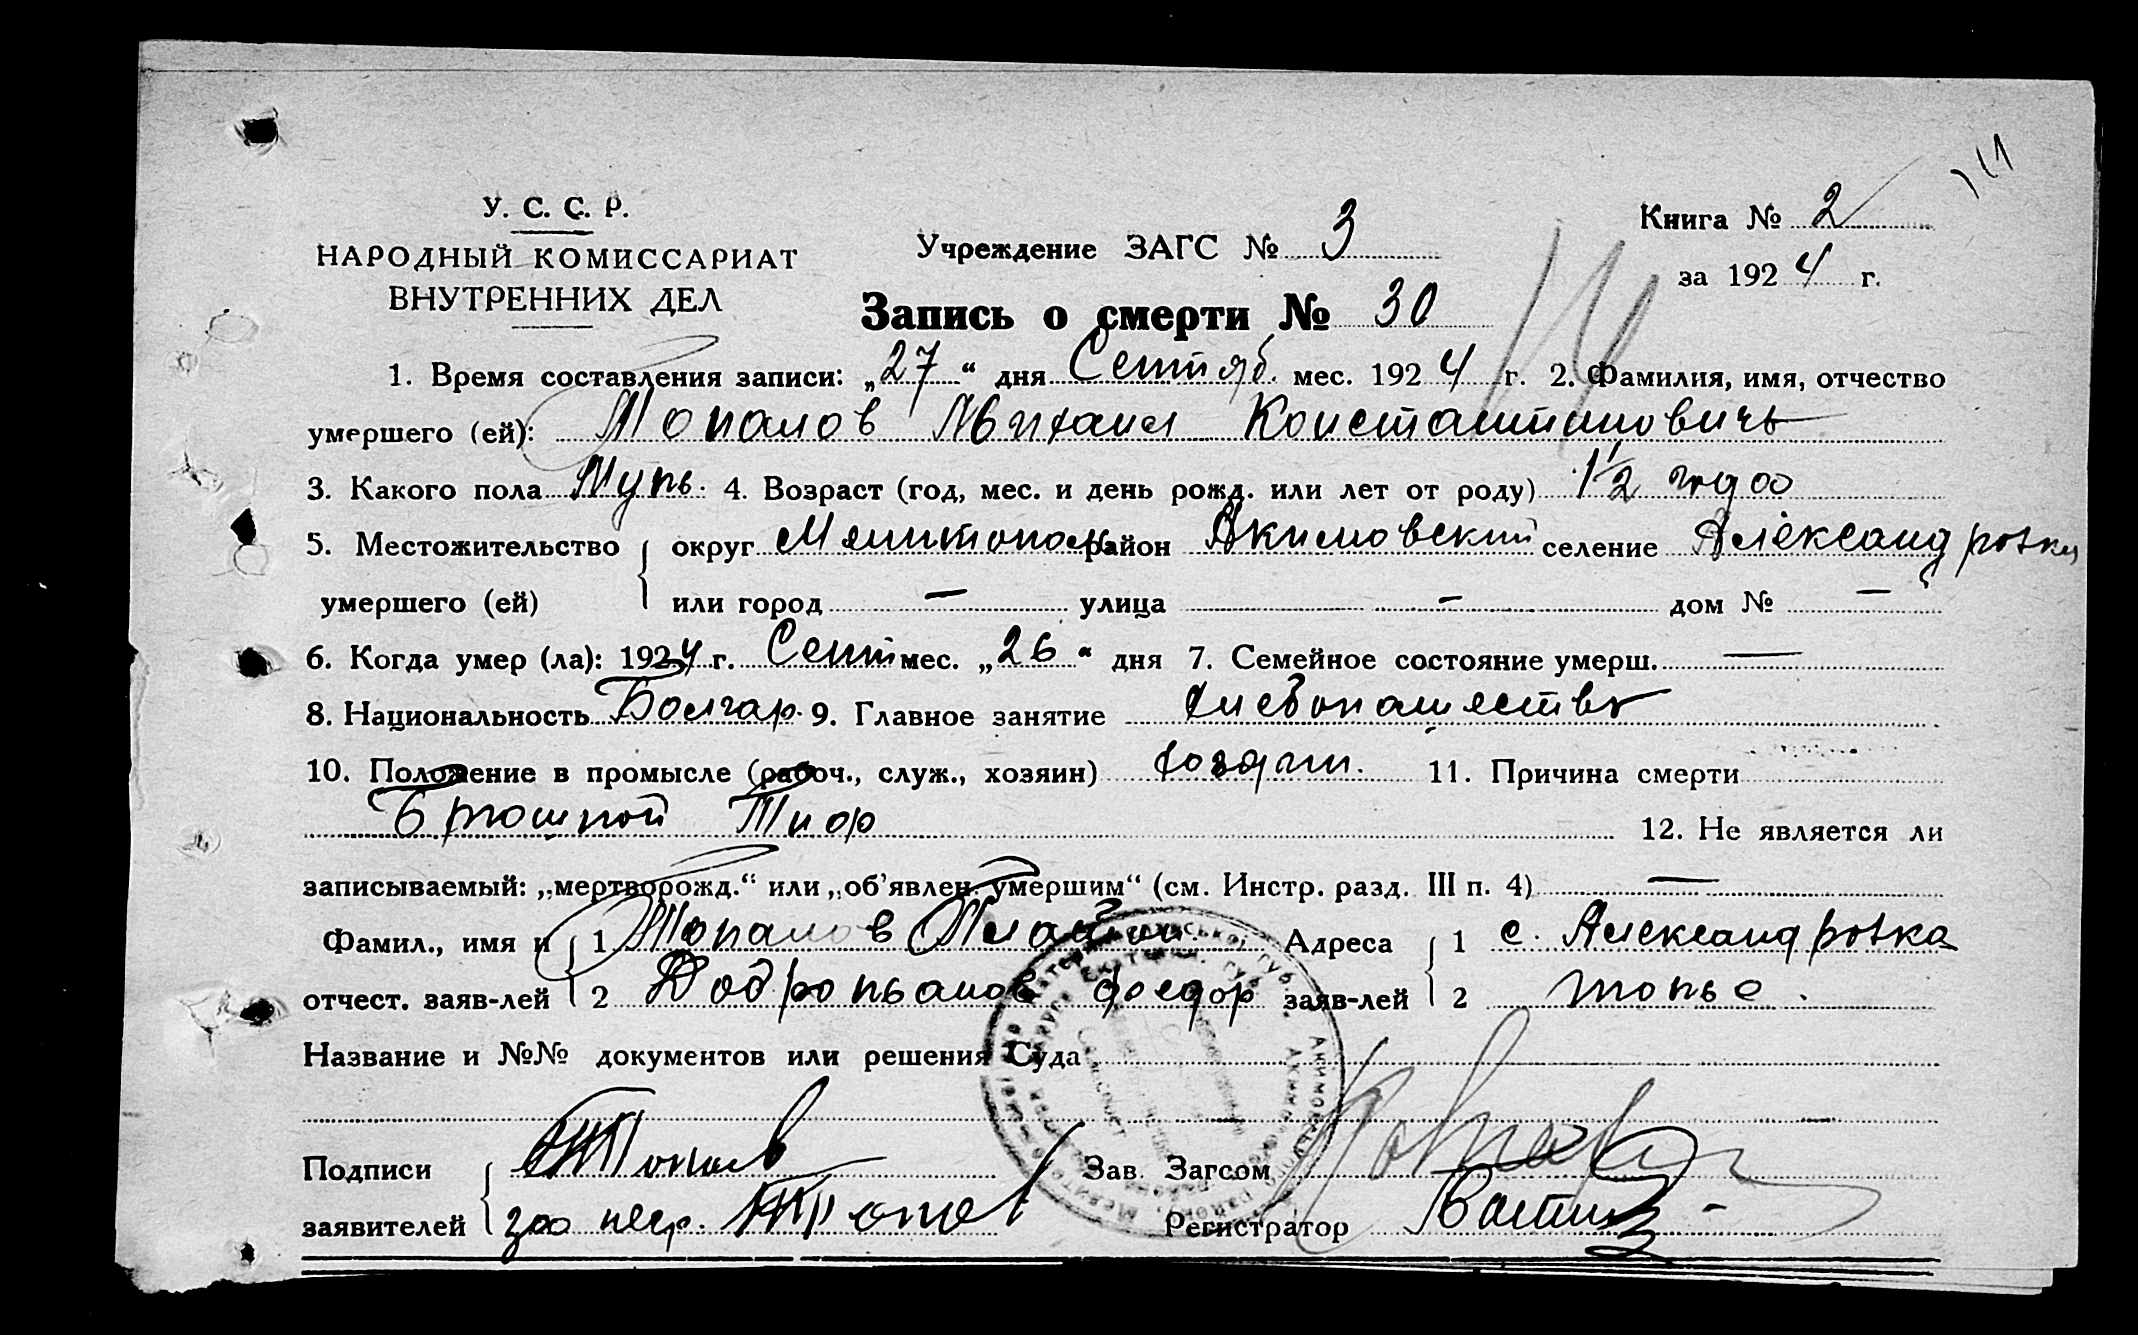 111
У. С. С. Р.
НАРОДНЫЙ КОМИССАРИАТ
ВНУТРЕННИХ ДЕЛ
Учреждение ЗАГС № 3
Книга № 2
за 1924 г.
Запись о смерти № 30
1. Время составления записи: „27“ дня Сентяб. мес. 1924 г. 2. Фамилия, имя, отчество
умершего (ей): Топалов Михаил Константиновичь
3. Какого пола Муж. 4. Возраст (год, мес. и день рожд. или лет от роду) 1 1/2 года
5. Местожительство округ Мелитопол район Акимовский селение Александровка
умершего (ей) или город — улица — дом № —
6. Когда умер (ла): 1924 г. Сент мес. „26“ дня 7. Семейное состояние умерш. —
8. Национальность Болгар. 9. Главное занятие хлебопашество
10. Положение в промысле (рабоч., служ., хозяин) 11. Причина смерти
Брюшной Тиф
12. Не является ли
записываемый: „мертворожд.“ или „об'явлен. умершим“ (см. Инстр. разд. III п. 4) —
Фамил., имя и 1 Топалов Адреса 1 с. Александровка
отчест. заяв-лей 2 Федор заяв-лей 2
Название и №№ документов или решения Суда
Подписи Зав. Загсом
заявителей за негр. Регистратор